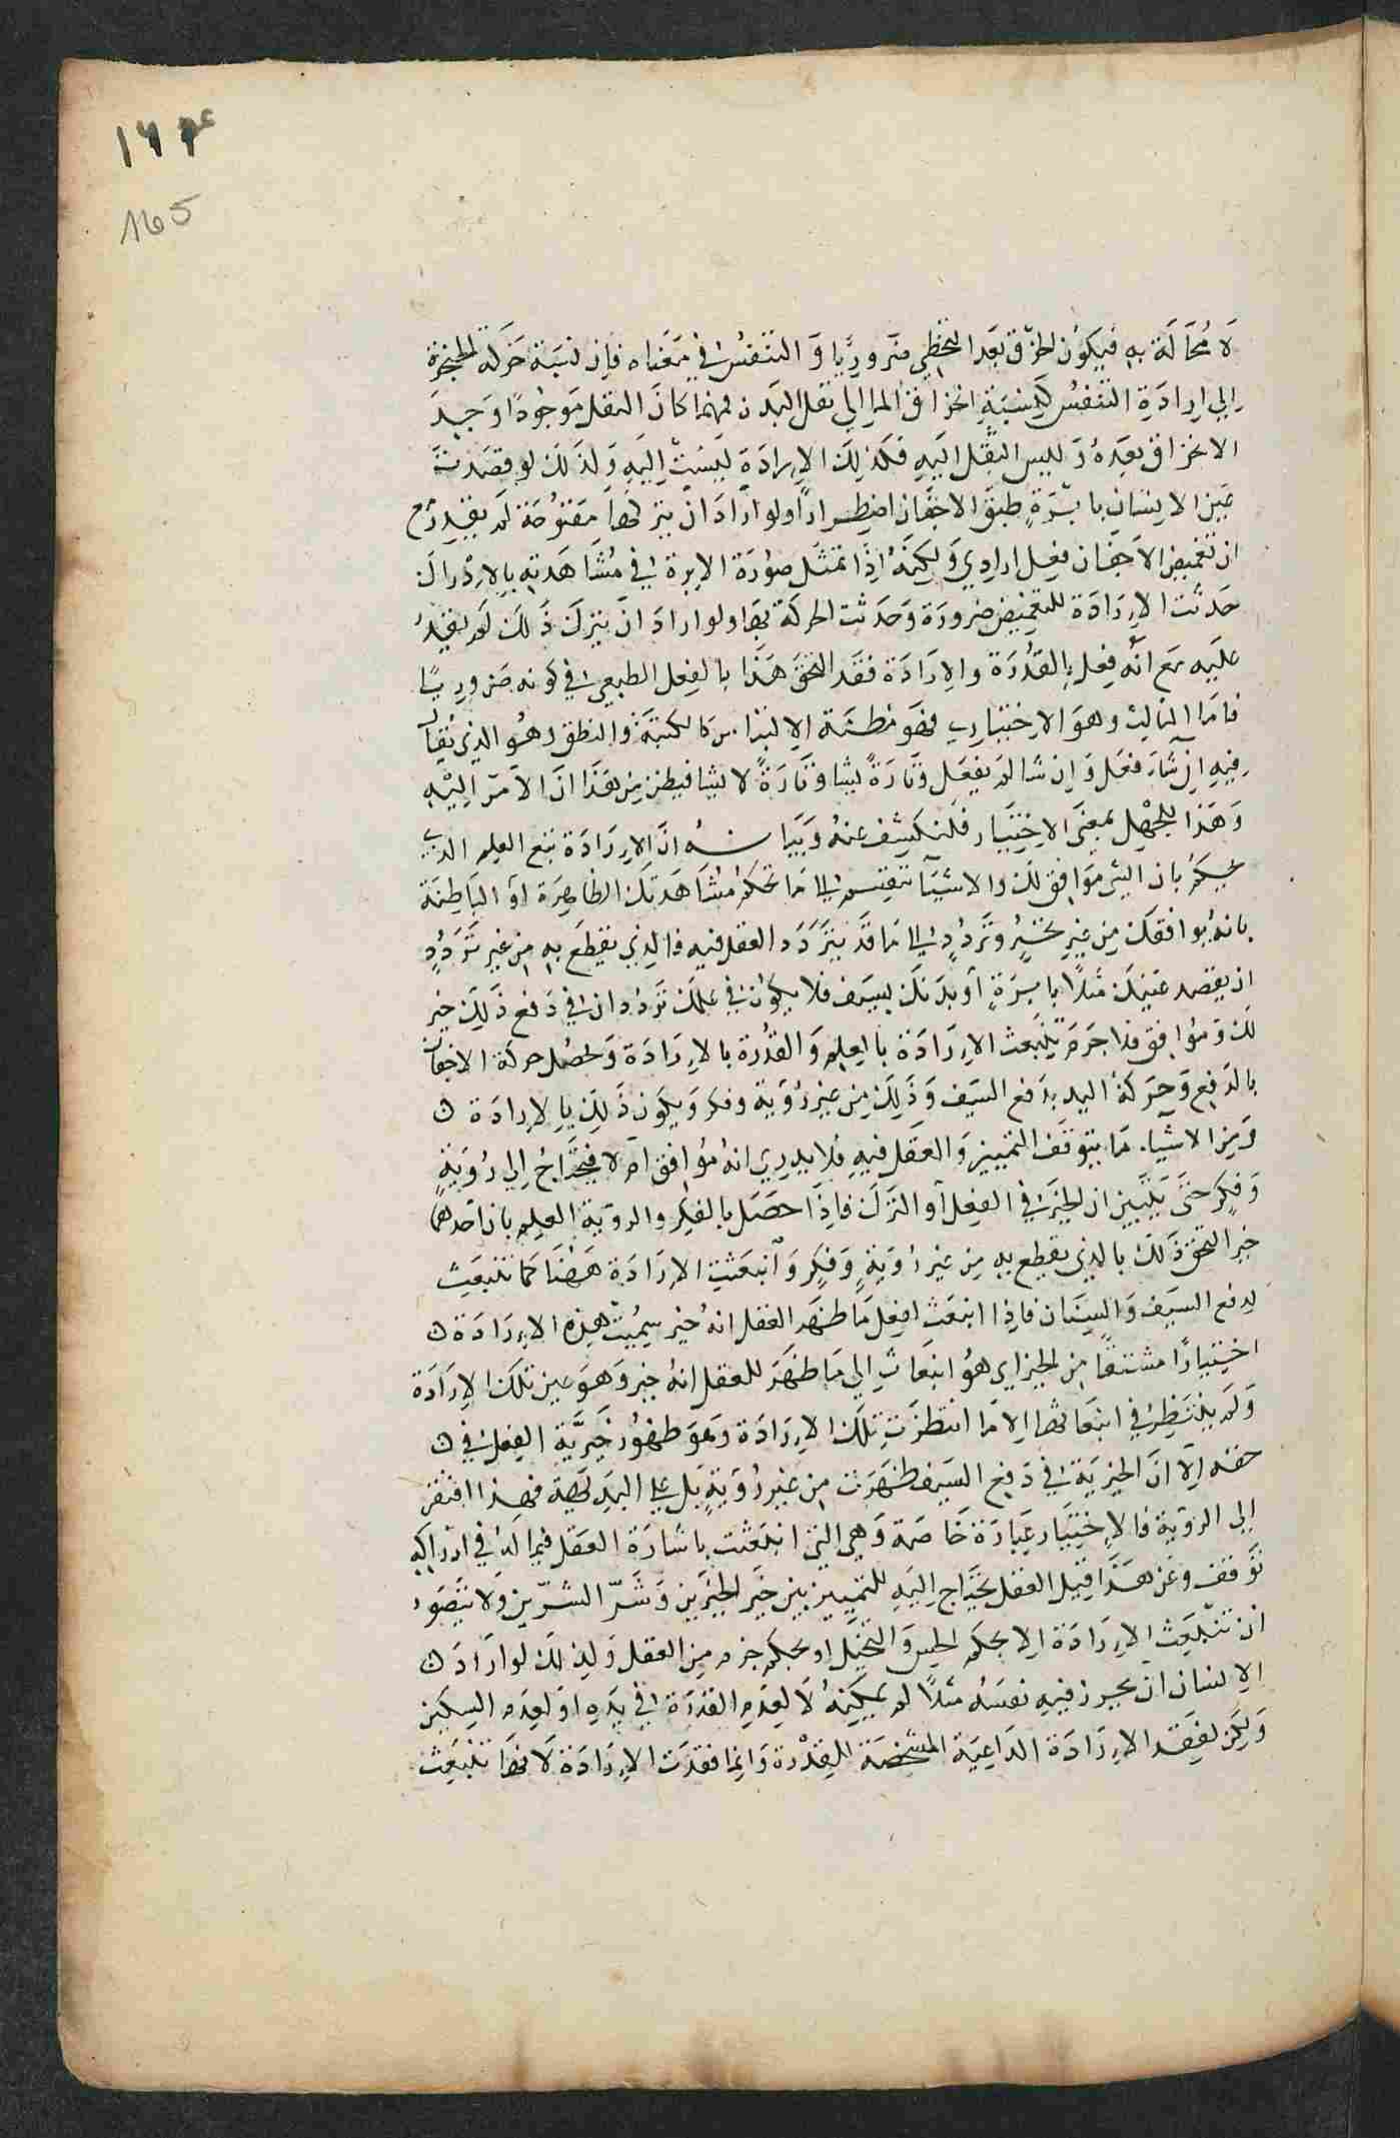 ١٦٤
165
لا محالة به فيكون الخرق بعد التخطي ضروريا والتنفس في معناه فإن نسبة حركة الحنجرة
إلى إرادة التنفس كنسبة انخراق الما إلى ثقل البدن فمهما كان الثقل موجودا وجد
الانخراق بعده وليس الثقل إليه فكذلك الإرادة ليست إليه ولذلك لو قصدت
عين الانسان بابرة طبق الاجفان اضطرارا ولو اراد ان يتركها مفتوحة لم يقدر مع
ان تغميض الاجفان فعل ارادي ولكنه اذا تمثل صورة الابرة في مشاهدته بالإدراك
حدثت الإرادة للتغميض ضرورة وحدثت الحركة بها ولو اراد ان يترك ذلك لم يقدر
عليه مع انه فعل بالقدرة والإرادة فقد التحق هذا بالفعل الطبيعي في كونه ضروريا
فاما الثالث وهو الاختياري فهو مظنة الالتباس كالكتبة والنطق وهو الذي يقال
فيه إن شاء فعل وإن شا لم يفعل وتارة يشا وتارة لا يشا فيظن من هذا ان الأمر اليه
وهذا للجهل بمعنى الاختيار فلنكشف عنه وبيانه ان الإرادة تبع العلم الذي
يحكم بان الشي موافق لك والاشيا تنقسم الى ما تحكم مشاهدتك الظاهرة أو الباطنة
بانه يوافقك من غير تحير وتردد والى ما قد يتردد العقل فيه فالذي يقطع به من غير تردد
ان يقصد عينك مثلا بابرة أو بدنك بسيف فلا يكون في علمك تردد ان في دفع ذلك خير
لك وموافق فلا جرم تنبعث الإرادة بالعلم والقدرة بالإرادة وتحصل حركة الاجفان
بالدفع وحركة اليد بدفع السيف وذلك من غير روية وفكر ويكون ذلك بالإرادة
ومن الاشيا ما يتوقف التمييز والعقل فيه فلا يدري انه موافق أم لا فيحتاج إلى روية
وفكر حتى يتبين ان الخير في الفعل أو الترك فاذا حصل بالفكر والروية العلم بان أحدهما
خير التحق ذلك بالذي يقطع به من غير روية وفكر وانبعثت الإرادة ههنا كما تنبعث
لدفع السيف والسنان فاذا انبعثت لفعل ما ظهر للعقل انه خير سميت هذه الإرادة
اختيارا مشتقا من الخير اي هو انبعاث إلى ما ظهر للعقل انه خير وهو عين تلك الإرادة
ولم ينتظر في انبعاثها الا ما انتظرت تلك الإرادة وهو ظهور خيرية الفعل في
حقه إلا ان الخيرية في دفع السيف ظهرت من غير روية بل على البديهة فهذا افتقر
إلى الروية فالاختيار عبارة خاصة وهي التي انبعثت باشارة العقل فيما له في ادراكه
توقف وعن هذا قيل العقل يحتاج إليه للتمييز بين خير الخيرين وشر الشرين ولا يتصور
ان تنبعث الإرادة إلا بحكم الحس والتخيل او بحكم جزم من العقل ولذلك لو اراد
الانسان ان يحز رقبة نفسه مثلا لم يمكنه لا لعدم القدرة في يده او لعدم السكين
ولكن لفقد الإرادة الداعية المشخصة للقدرة وانما فقدت الإرادة لانها تنبعث